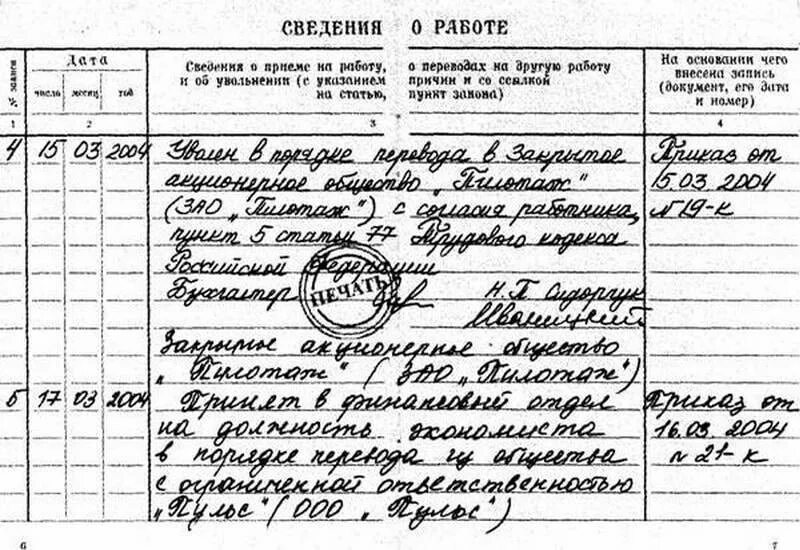 СВЕДЕНИЯ О РАБОТЕ
№ записи
Дата
число месяц год
Сведения о приеме на работу, о переводах на другую работу
и об увольнении (с указанием причин и со ссылкой
на статью, пункт закона)
На основании чего
внесена запись
(документ, его дата
и номер)
1 2 3 4
4 15 03 2004 Уволен в порядке перевода в Закрытое Приказ от
акционерное общество „Пилотаж" 15.03 2004
(ЗАО „Пилотаж") с согласия работника, №19-к
пункт 5 статьи 77 Трудового кодекса
Российской Федерации
Бухгалтер Н.П Сидорчук
ПЕЧАТЬ
Иваницкий
Закрытое акционерное общество
„Пилотаж" (ЗАО „Пилотаж")
5 17 03 2004 Принят в финансовый отдел Приказ от
на должность экономиста 16.03. 2004
в порядке перевода из общества №21-к
с ограниченной ответственностью
„Пульс" (ООО „Пульс")
6 7